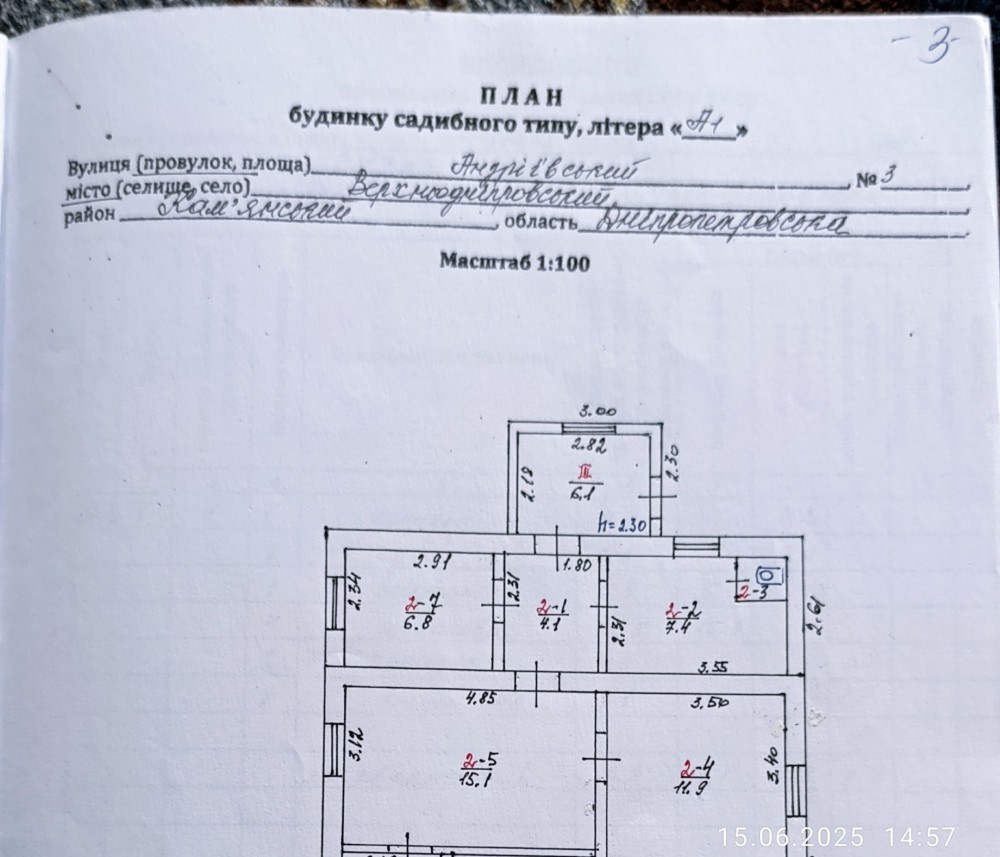 - 3 -
ПЛАН
будинку садибного типу, літера «А1»
Вулиця (провулок, площа) Андріївський, № 3
місто (селище, село) Верхньодніпровський,
район Кам'янський, область Дніпропетровська
Масштаб 1:100
3.00
2.82
2.19
II
6.1
2.30
h=2.30
2.91
2.34
2-7
6.8
2.31
1.80
2-1
4.1
2.31
2-2
7.4
2-3
2.61
3.55
4.85
3.50
3.12
2-5
15.1
2-4
11.9
3.40
15.06.2025 14:57